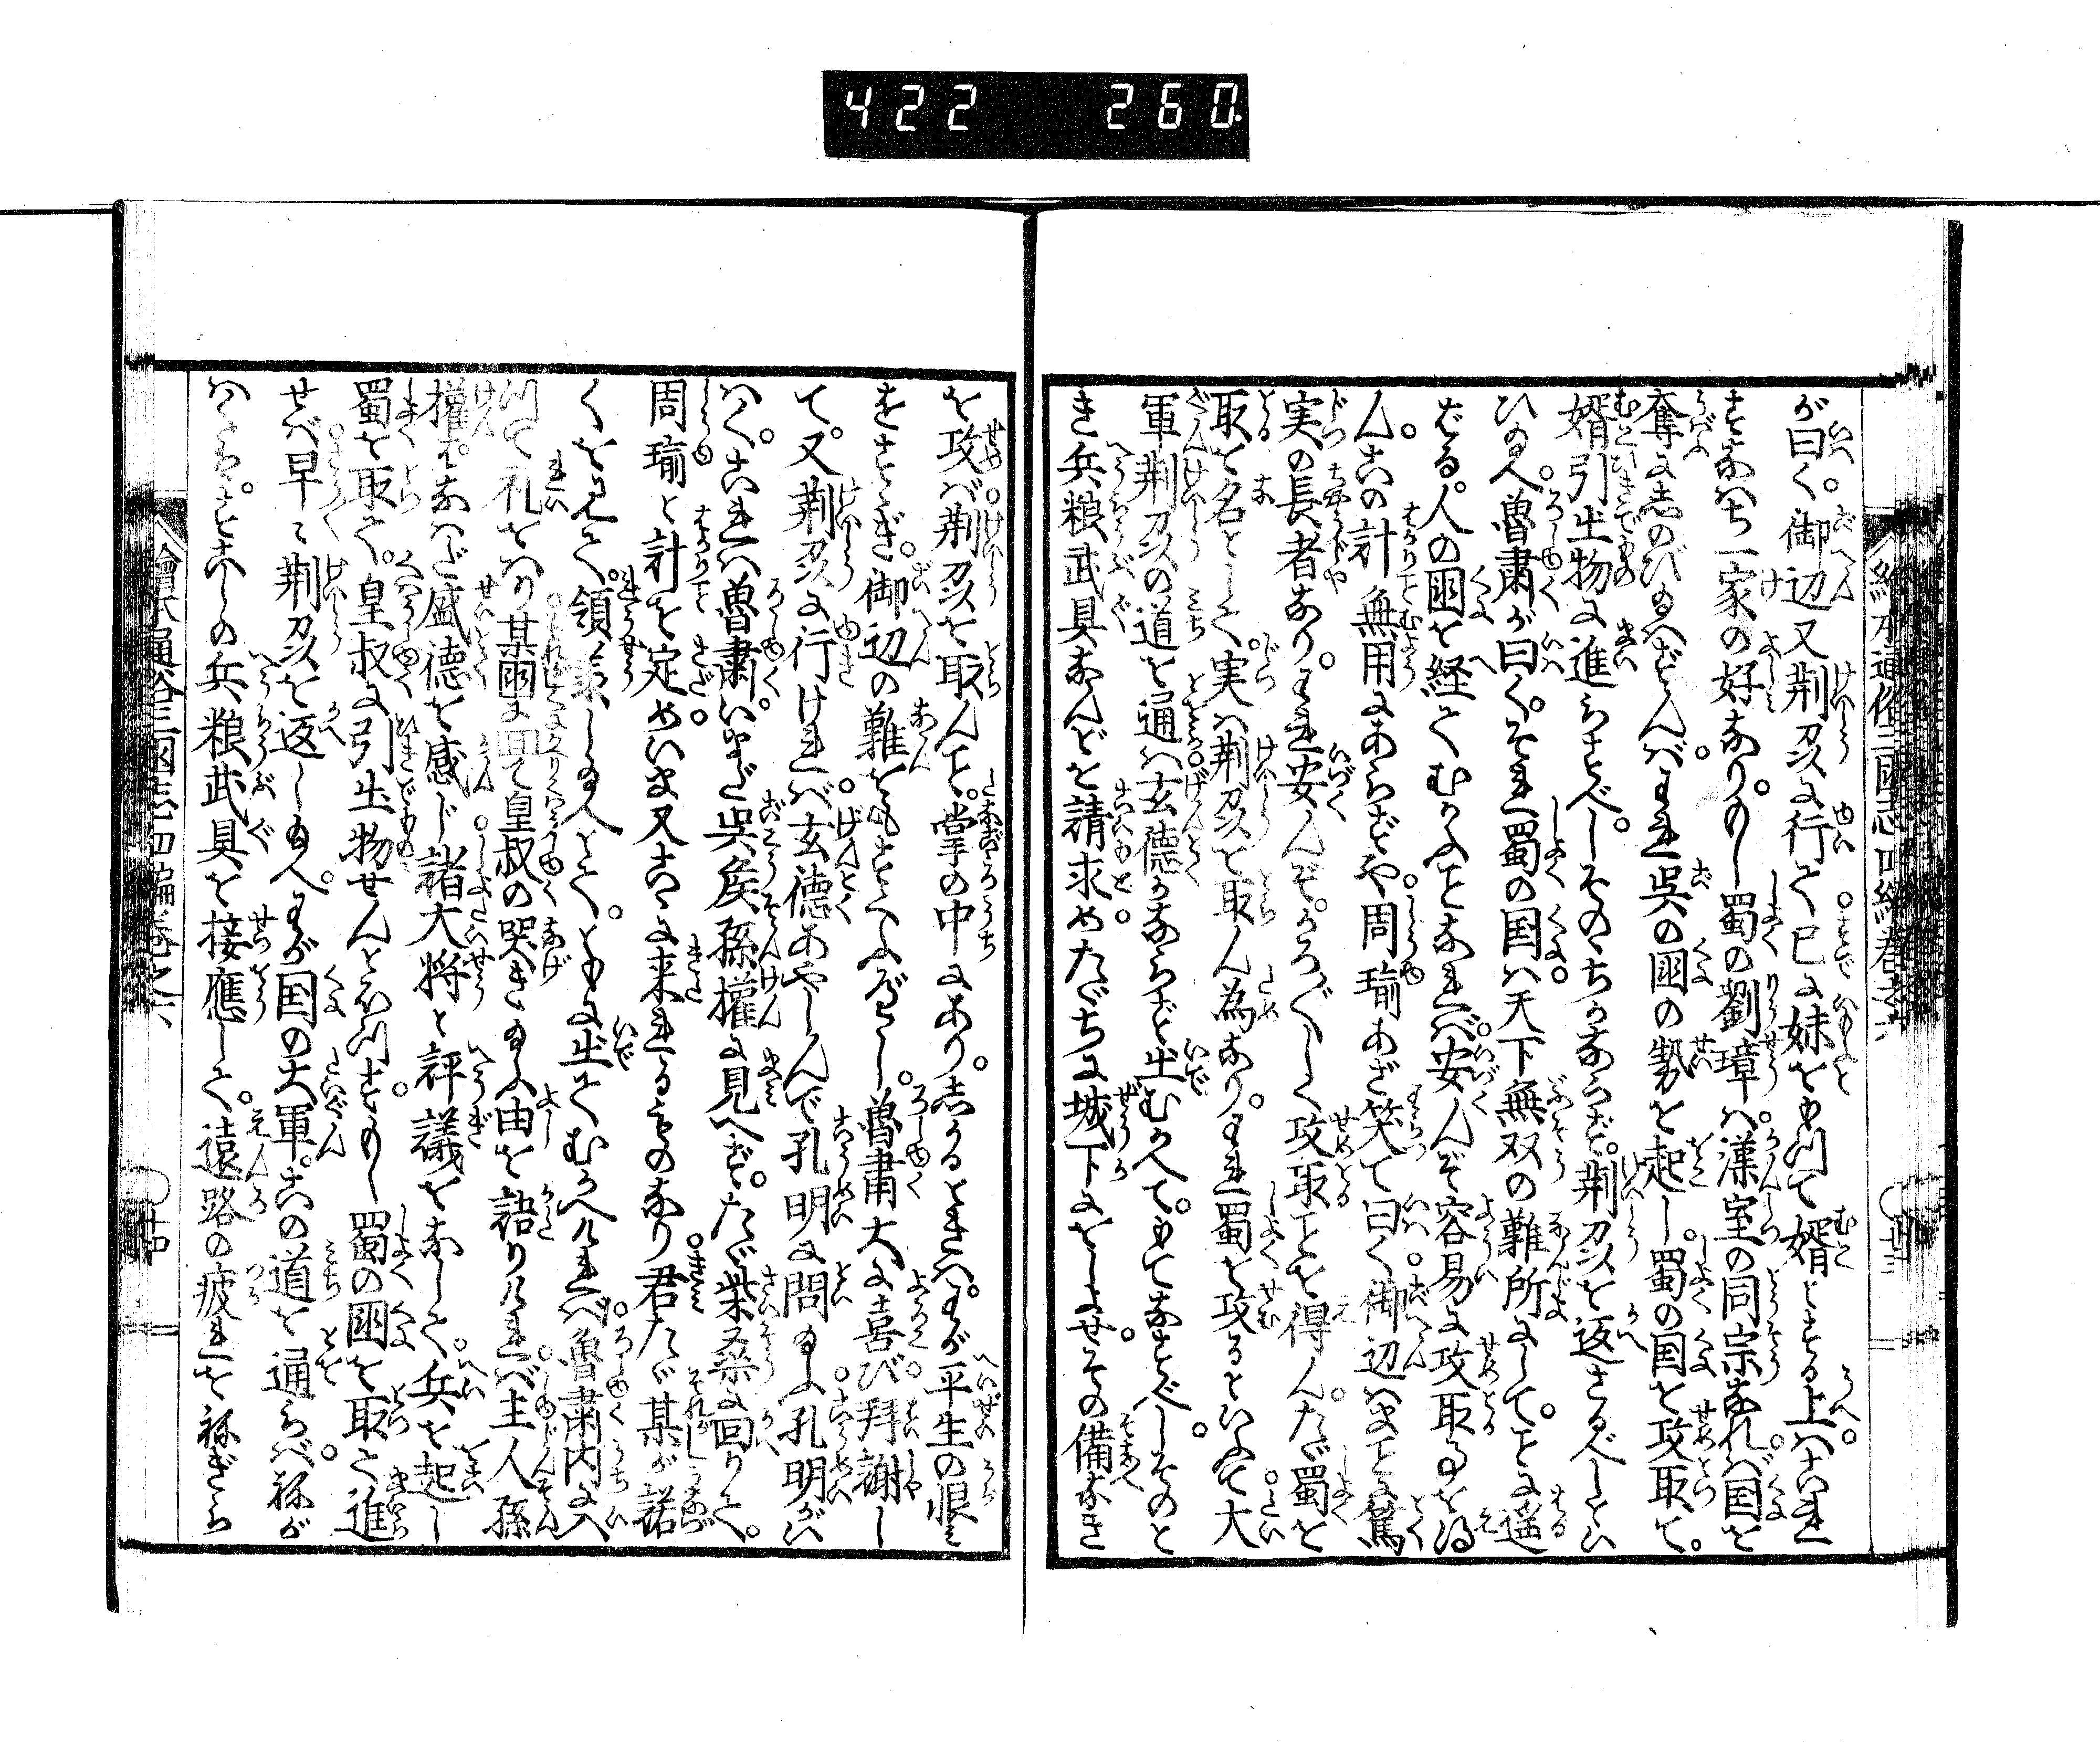 422 260
繪本通俗三國志四編巻之六
が曰く。御辺又荆刕に行て已に妹をもつて婿とする上ハこれ
すなハち一家の好なり。のし蜀の劉璋ハ漢室の同宗なれバ国を
奪に忍のび玉ハずんバ。われ呉の國の勢を起し。蜀の国を攻取て。
婿引出物に進らすべし。そのゝちかならず。荆刕を返さるべしとい
ひ玉へ。魯粛が曰く。それ蜀の国ハ天下無双の難所にして。ことに遥
なる。人の國を経てむかふことなれバ。安んぞ容易に攻取事を得
ん。この計無用にあらずや。周瑜あざ笑て曰く御辺ハまことに篤
実の長者なり。われ安んぞ。かろ〴〵しく攻取ことを得ん。たゞ蜀を
取を名として。実ハ荆刕を取ん為なり。われ蜀を攻るといふて大
軍荆刕の道を通ハ玄德かならず出むかへて。もてなすべし。そのと
き兵粮武具なんどを請求めたゞちに城下におしよせ。その備なき
を攻バ荆刕を取んこと。掌の中にあり。しかるときハ。わが平生の恨ミ
をすゝぎ。御辺の難をもすくふべし。魯粛大に喜び。拜謝し
て。又荆刕に行けれバ。玄德あやしんで孔明に問玉ふ孔明がい
はく。これハ魯粛。いまだ呉侯孫權に見へず。たゞ柴桑に回りて。
周瑜と計を定めいま又こゝに来れるものなり君たゞ某が諾
くを見て。領承し玉へとて。ともに出てむかへけれバ。魯粛内に入
て礼をハり某國に回て皇叔の哭き玉ふ由を語りけれバ。主人孫
權はなハだ盛德を感じ諸大将と評議をなして。兵を起し
蜀を取て。皇叔に引出物せんとおもつす。のし蜀の國を取て進
せバ早々荆刕を返し玉へ。わが国の大軍。この道を通らバ。ねが
ハくハ。すこしの兵粮武具を接應して。遠路の疲れをねぎら
繪本通俗三國志四編巻之六
廿四